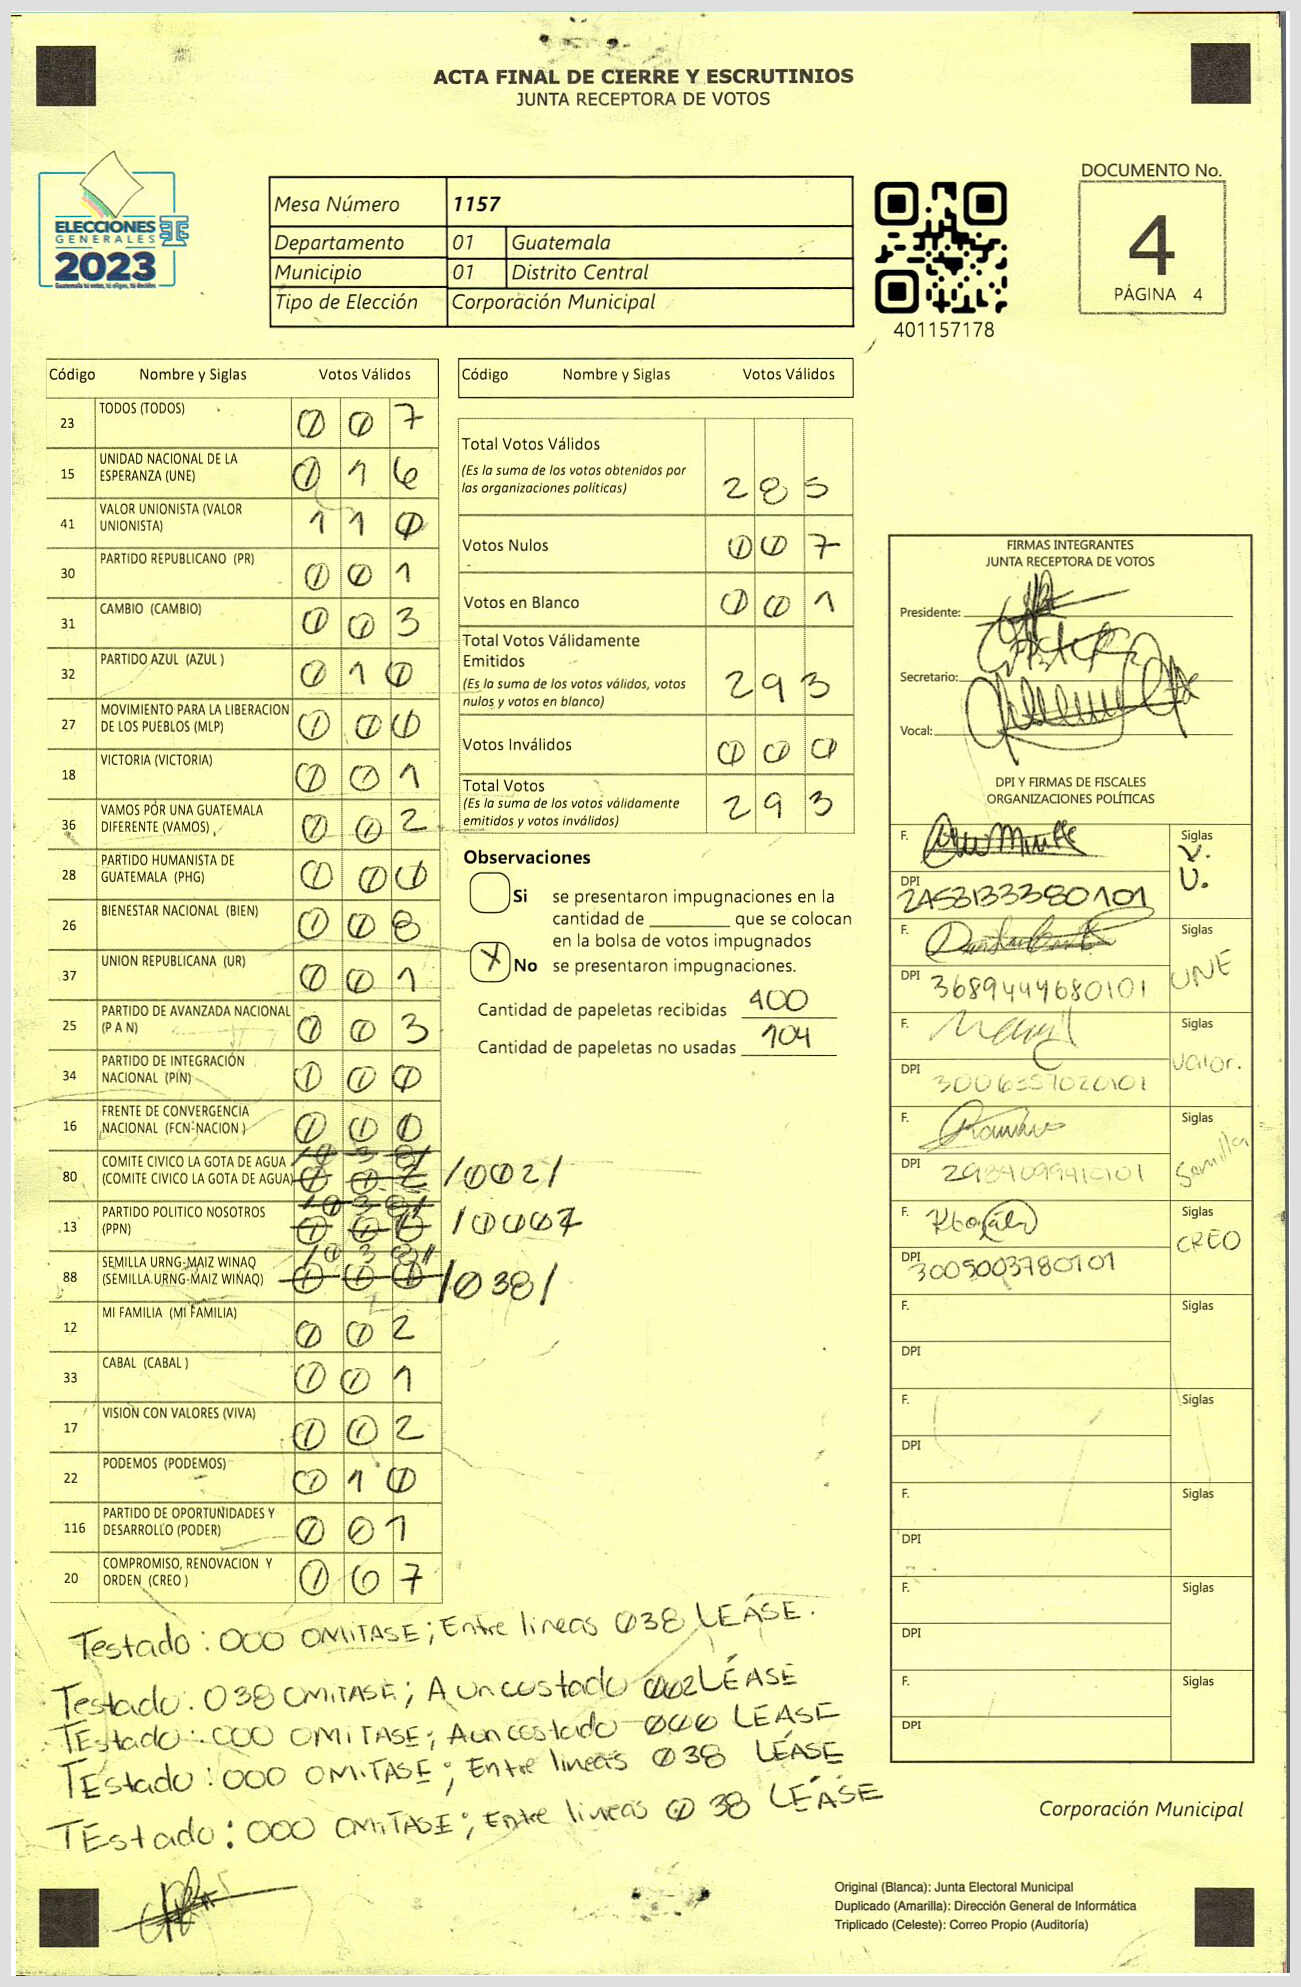 ACTA FINAL DE CIERRE Y ESCRUTINIOS
JUNTA RECEPTORA DE VOTOS
ELECCIONES
GENERALES
2023
Guatemala tú votas, tú eliges, tú decides
Mesa Número 1157
Departamento 01 Guatemala
Municipio 01 Distrito Central
Tipo de Elección Corporación Municipal
401157178
DOCUMENTO No.
4
PÁGINA 4
Código Nombre y Siglas Votos Válidos
23 TODOS (TODOS) 0 0 7
15 UNIDAD NACIONAL DE LA ESPERANZA (UNE) 0 1 6
41 VALOR UNIONISTA (VALOR UNIONISTA) 1 1 0
30 PARTIDO REPUBLICANO (PR) 0 0 1
31 CAMBIO (CAMBIO) 0 0 3
32 PARTIDO AZUL (AZUL ) 0 1 0
27 MOVIMIENTO PARA LA LIBERACION DE LOS PUEBLOS (MLP) 0 0 0
18 VICTORIA (VICTORIA) 0 0 1
36 VAMOS POR UNA GUATEMALA DIFERENTE (VAMOS) 0 0 2
28 PARTIDO HUMANISTA DE GUATEMALA (PHG) 0 0 0
26 BIENESTAR NACIONAL (BIEN) 0 0 8
37 UNION REPUBLICANA (UR) 0 0 1
25 PARTIDO DE AVANZADA NACIONAL (P A N) 0 0 3
34 PARTIDO DE INTEGRACIÓN NACIONAL (PIN) 0 0 0
16 FRENTE DE CONVERGENCIA NACIONAL (FCN-NACION ) 0 0 0
80 COMITE CIVICO LA GOTA DE AGUA (COMITE CIVICO LA GOTA DE AGUA) /002/
13 PARTIDO POLITICO NOSOTROS (PPN)
88 SEMILLA URNG-MAIZ WINAQ (SEMILLA.URNG-MAIZ WINAQ) /038/
12 MI FAMILIA (MI FAMILIA) 0 0 2
33 CABAL (CABAL ) 0 0 1
17 VISION CON VALORES (VIVA) 0 0 2
22 PODEMOS (PODEMOS) 0 1 0
116 PARTIDO DE OPORTUNIDADES Y DESARROLLO (PODER) 0 0 1
20 COMPROMISO, RENOVACION Y ORDEN (CREO ) 0 6 7
Código Nombre y Siglas Votos Válidos
Total Votos Válidos
(Es la suma de los votos obtenidos por
las organizaciones políticas) 2 8 5
Votos Nulos 0 0 7
Votos en Blanco 0 0 1
Total Votos Válidamente
Emitidos
(Es la suma de los votos válidos, votos
nulos y votos en blanco) 2 9 3
Votos Inválidos 0 0 0
Total Votos
(Es la suma de los votos válidamente
emitidos y votos inválidos) 2 9 3
Observaciones
Si se presentaron impugnaciones en la
cantidad de ________ que se colocan
en la bolsa de votos impugnados
X No se presentaron impugnaciones.
Cantidad de papeletas recibidas 400
Cantidad de papeletas no usadas 104
FIRMAS INTEGRANTES
JUNTA RECEPTORA DE VOTOS
Presidente:
Secretario:
Vocal:
DPI Y FIRMAS DE FISCALES
ORGANIZACIONES POLÍTICAS
F. Siglas V. U.
DPI 2453133380101
F. Siglas UNE
DPI 3689444680101
F. Siglas Valor.
DPI 3006357020101
F. Siglas Semilla
DPI 2984099410101
F. Siglas CREO
DPI 3005003780101
F. Siglas
DPI
F. Siglas
DPI
F. Siglas
DPI
F. Siglas
DPI
F. Siglas
DPI
Testado: 000 OMITASE; Entre lineas 038 LEÁSE.
Testado: 038 OMITASE; A un costado 002 LÉASE
TEstado: 000 OMITASE; A un costado 000 LEASE
TEstado: 000 OMITASE; Entre lineas 038 LÉASE
TEstado: 000 OMITASE; Entre lineas 038 LÉASE
Corporación Municipal
Original (Blanca): Junta Electoral Municipal
Duplicado (Amarilla): Dirección General de Informática
Triplicado (Celeste): Correo Propio (Auditoría)